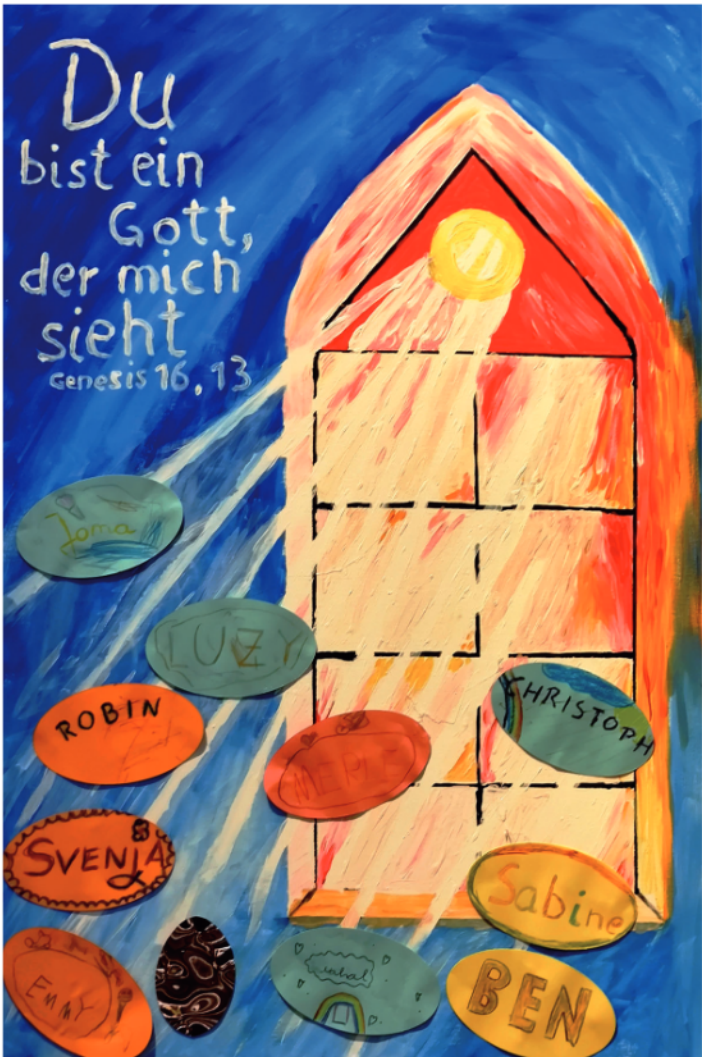 Du
bist ein
Gott,
der mich
sieht
Genesis 16,13
Joma
LUZY
ROBIN
CHRISTOPH
MERLE
SVENJA
Sabine
EMMY
BEN